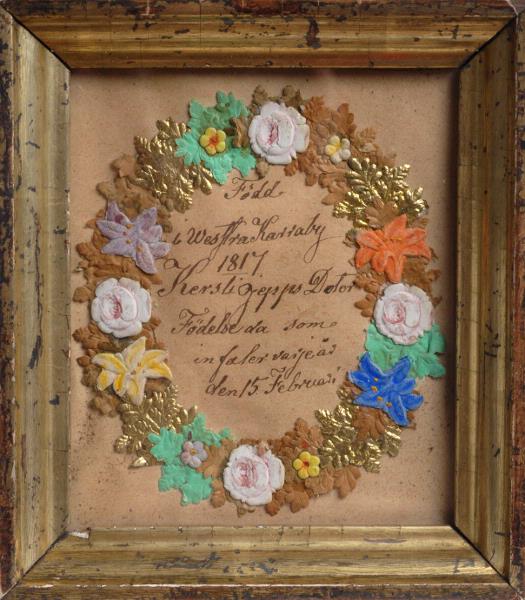 Född
i Westra Karraby
1817.
Kersti Jepps Dotor
Födelse da som
infaler varje år
den 15. Februari